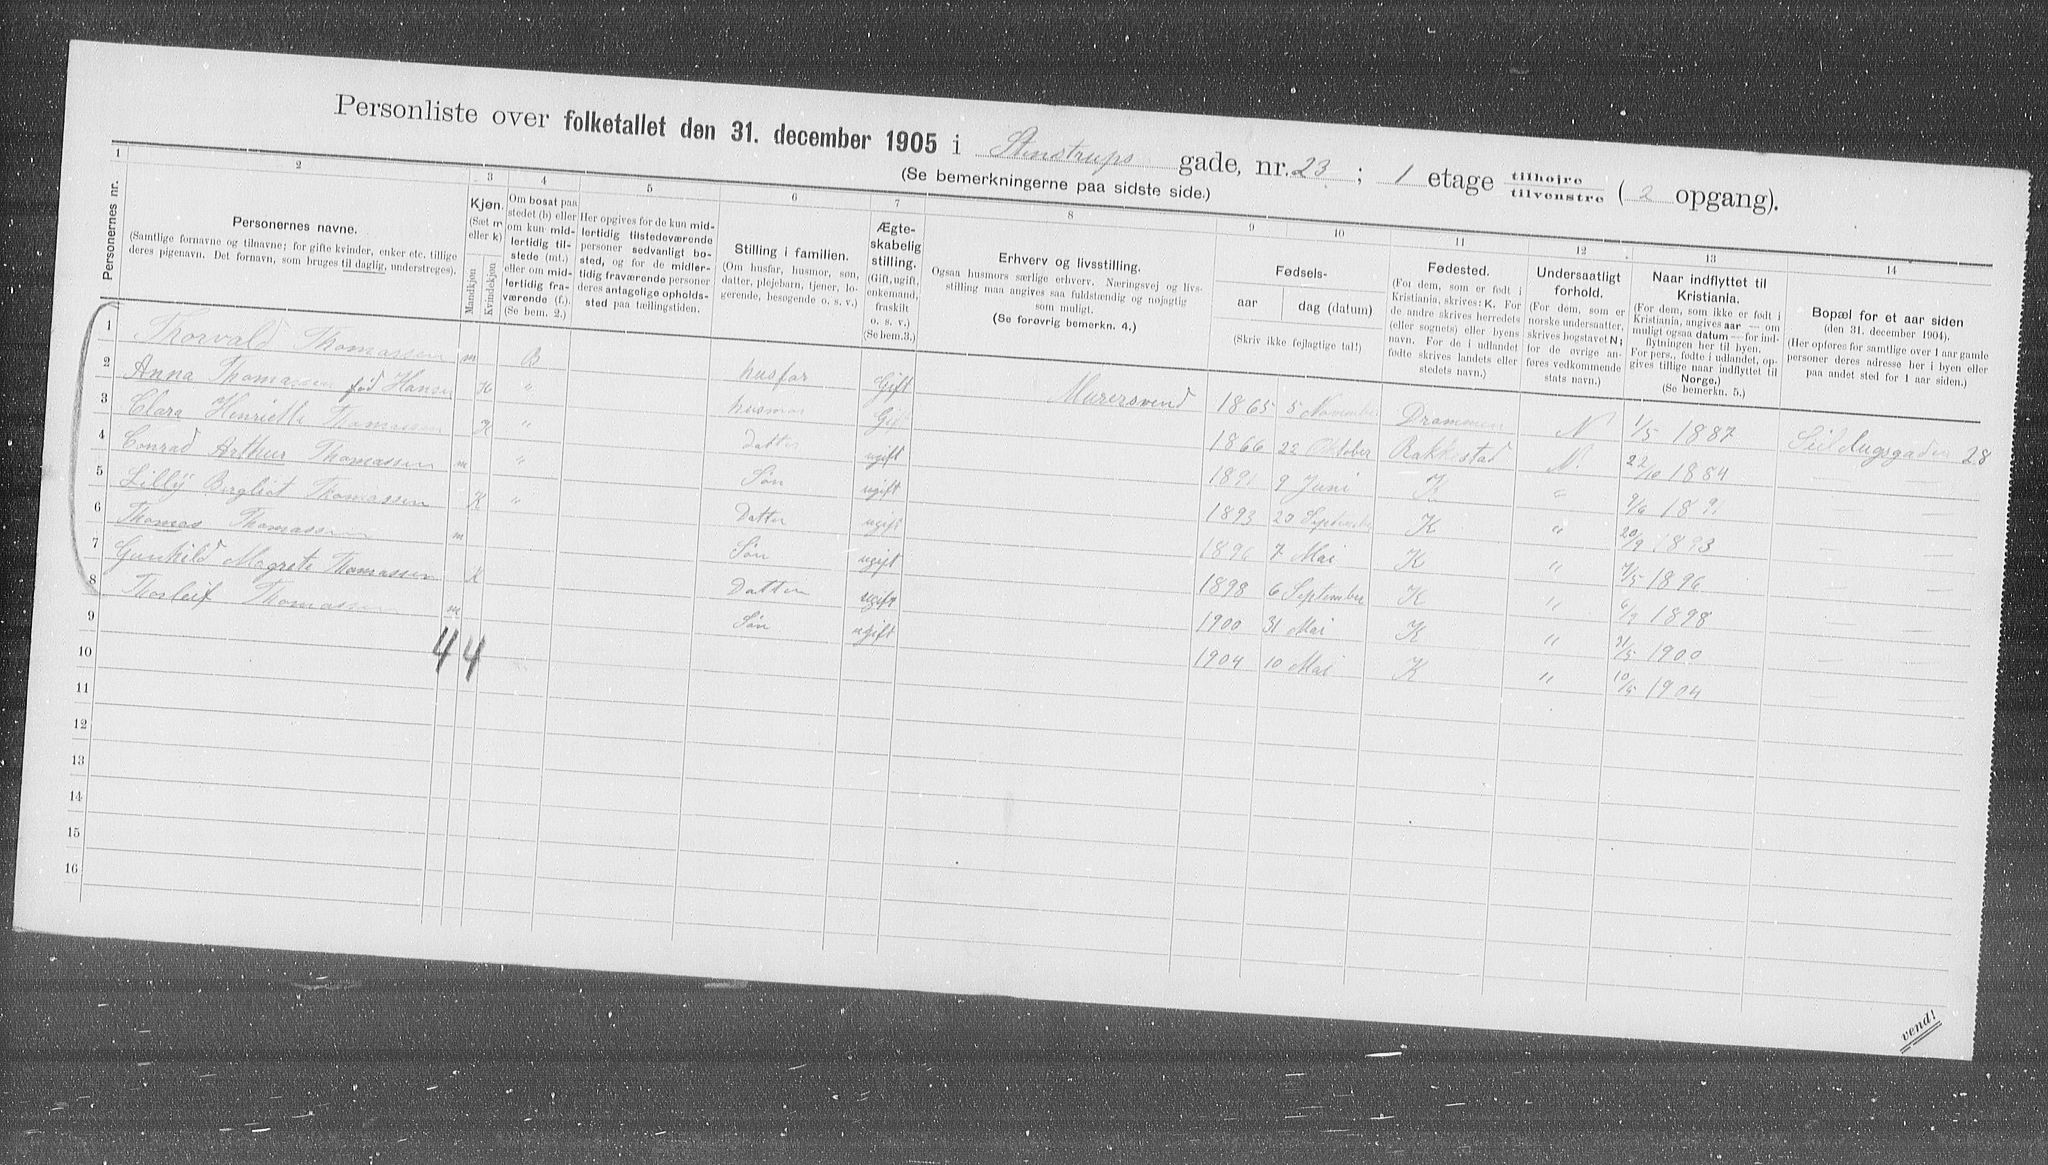 Personliste over folketallet den 31. december 1905 i Stenstrups gade, nr. 23 ; 1 etage tilhøire / tilvenstre ( 2 opgang).
(Se bemerkningerne paa sidste side.)
1 2 3 4 5 6 7 8 9 10 11 12 13 14
Personernes nr.
Personernes navne.
(Samtlige fornavne og tilnavne; for gifte kvinder, enker etc. tillige
deres pigenavn. Det fornavn, som bruges til daglig, understreges).
Kjøn.
(Sæt m
eller k)
Mandkjøn
Kvindekjøn
Om bosat paa
stedet (b) eller
om kun mid-
lertidig til-
stede (mt.)
eller om mid-
lertidig fra-
værende (f.).
(Se bem. 2.)
Her opgives for de kun mid-
lertidig tilstedeværende
personer sedvanligt bo-
sted, og for de midler-
tidig fraværende personer
deres antagelige opholds-
sted paa tællingstiden.
Stilling i familien.
(Om husfar, husmor, søn,
datter, plejebarn, tjener, lo-
gerende, besøgende o. s. v.)
Ægte-
skabelig
stilling.
(Gift, ugift,
enkemand,
fraskilt
o. s. v.)
(Se bem.3.)
Erhverv og livsstilling.
Ogsaa husmors særlige erhverv. Næringsvej og livs-
stilling maa angives saa fuldstændig og nøjagtig
som muligt.
(Se forøvrig bemerkn. 4.)
Fødsels-
aar
dag (datum)
(Skriv ikke fejlagtige tal!)
Fødested.
(For dem, som er født i
Kristiania, skrives: K. For
de andre skrives herredets
(eller sognets) eller byens
navn. For de i udlandet
fødte skrives landets eller
stedets navn.)
Undersaatligt
forhold.
(For dem, som er
norske undersaatter,
skrives bogstavet N;
for de øvrige an-
føres vedkommende
stats navn.)
Naar indflyttet til
Kristiania.
(For dem, som ikke er født i
Kristiania, angives aar — om
muligt ogsaa datum — for ind-
flytningen her til byen.
For pers., fødte i udlandet, op-
gives tillige naar indflyttet til
Norge.)
(Se bemerkn. 5.)
Bopæl for et aar siden
(den 31. december 1904).
(Her opføres for samtlige over 1 aar gamle
personer deres adresse her i byen eller
paa andet sted for 1 aar siden.)
1 Thorvald Thomassen m B husfar Gift Murersvend 1865 5 November Drammen N 1/5 1887 Seildugsgaden 28
2 Anna Thomassen fød Hansen K " husmor Gift 1866 22 Oktober Rakkestad N. 22/10 1884 — —
3 Clara Henriette Thomassen K " datter ugift 9 Juni K " 9/6 — —
4 Conrad Arthur Thomassen m " Søn ugift 1893 20 September K " 20/9 1893 — —
5 Lilly Bergliot Thomassen K " Datter ugift 1896 7 Mai K " 7/5 1896 — —
6 Thomas Thomassen m Søn ugift 1898 6 September K " 6/9 1898 — —
7 Gunhild Magrete Thomassen K Datter ugift 1900 31 Mai K " 31/5 1900 —
8 Thorleif Thomassen m Søn ugift 1904 10 Mai K " 10/5 1904 — —
9
4 4
10
11
12
13
14
15
16
vend!